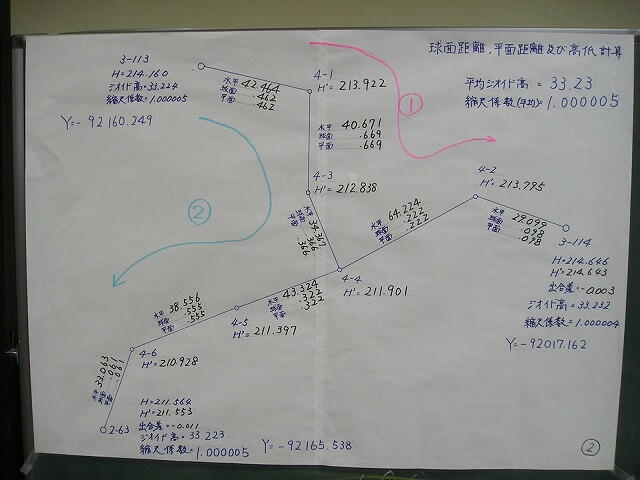 球面距離,平面距離及び高低計算
平均ジオイド高 = 33.23
縮尺係数(平均)= 1.000005
3-113
H=214.160
ジオイド高=33.224
縮尺係数=1.000005
Y=-92160.249
水平 42.464
球面 .462
平面 .462
4-1
H'=213.922
①
水平 40.671
球面 .669
平面 .669
4-3
H'=212.838
②
水平 34.367
球面 .366
平面 .366
4-2
H'=213.795
水平 64.224
球面 .222
平面 .222
水平 29.099
球面 .098
平面 .098
3-114
H=214.646
H'=214.643
出合差=-0.003
ジオイド高=33.232
縮尺係数=1.000004
Y=-92017.162
4-4
H'=211.901
水平 43.324
球面 .322
平面 .322
4-5
H'=211.397
水平 38.556
球面 .555
平面 .555
4-6
H'=210.928
水平 33.063
球面 .061
平面 .061
2-63
H=211.564
H'=211.553
出合差=-0.011
ジオイド高=33.223
縮尺係数=1.000005
Y=-92165.538
②